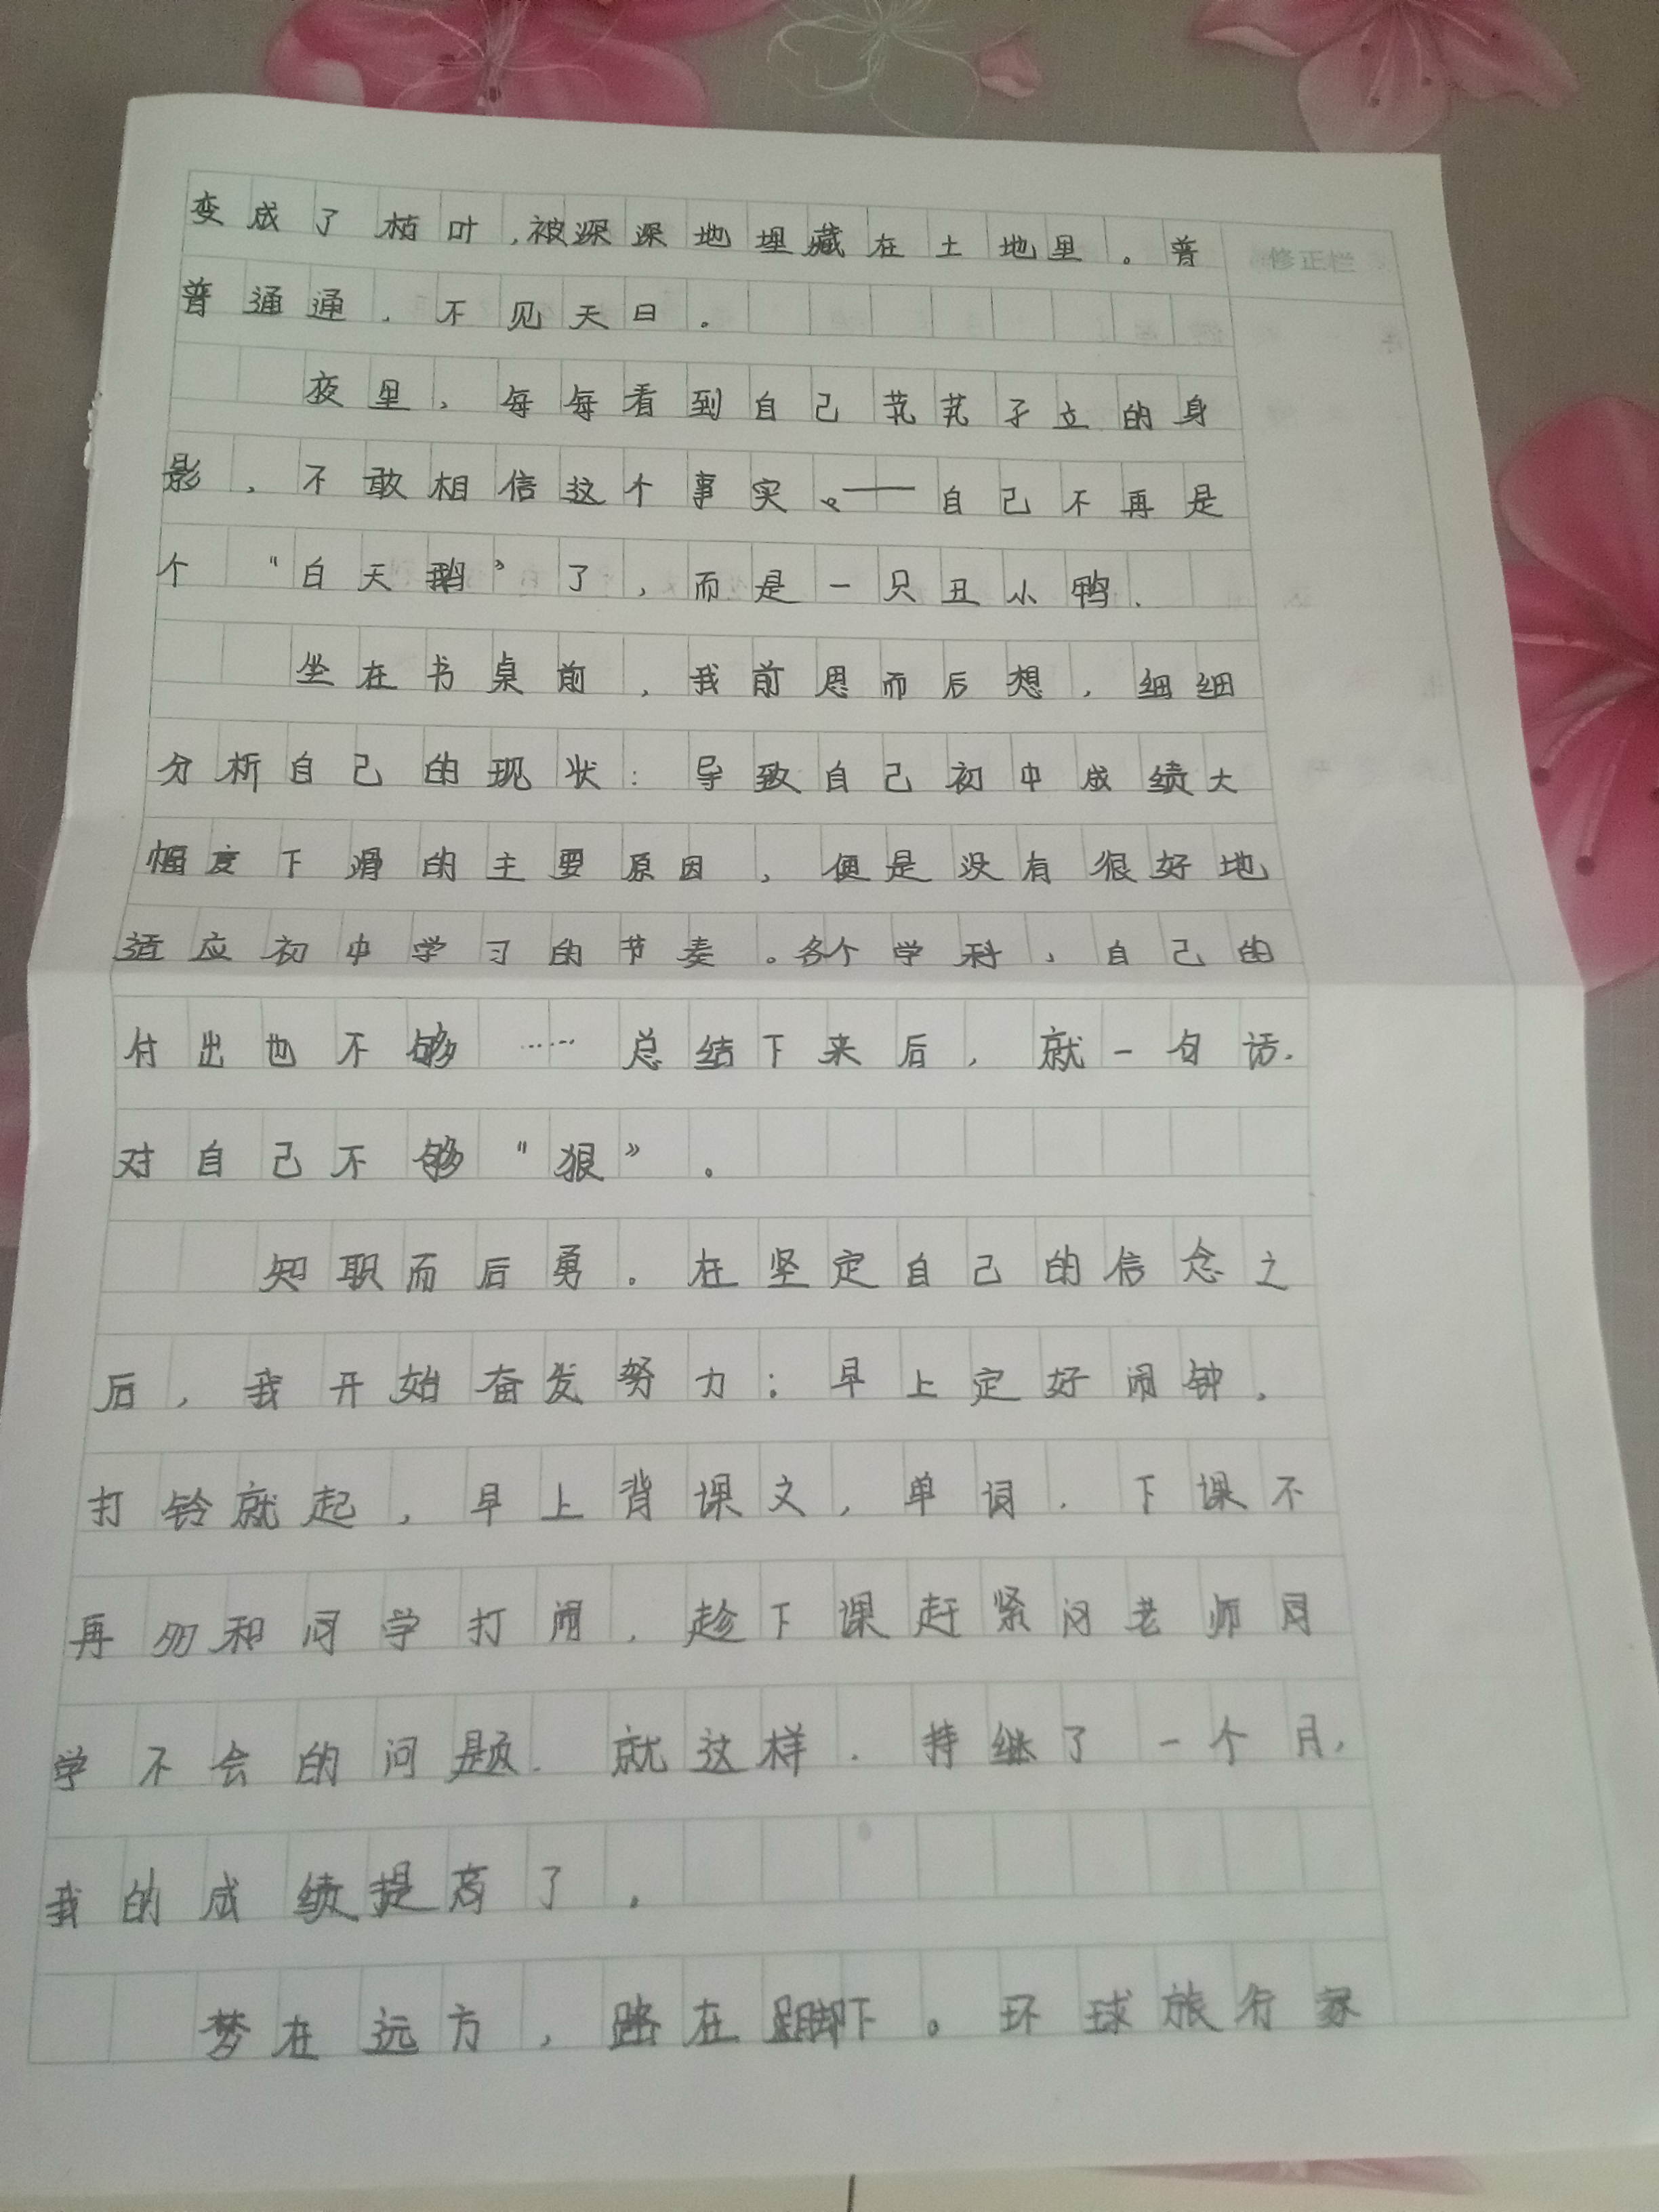 变成了枯叶,被深深地埋藏在土地里。普
修正栏
普通通,不见天日。
夜里,每每看到自己茕茕孑立的身
影,不敢相信这个事实。——自己不再是
个“白天鹅”了,而是一只丑小鸭.
坐在书桌前,我前思而后想,细细
分析自己的现状:导致自己初中成绩大
幅度下滑的主要原因,便是没有很好地
适应初中学习的节奏。各个学科,自己的
付出也不够……总结下来后,就一句话.
对自己不够“狠”。
知职而后勇。在坚定自己的信念之
后,我开始奋发努力:早上定好闹钟,
打铃就起,早上背课文,单词.下课不
再和同学打闹,趁下课赶紧问老师同
学不会的问题.就这样.持继了一个月,
我的成绩提高了.
梦在远方,路在脚下。环球旅行家